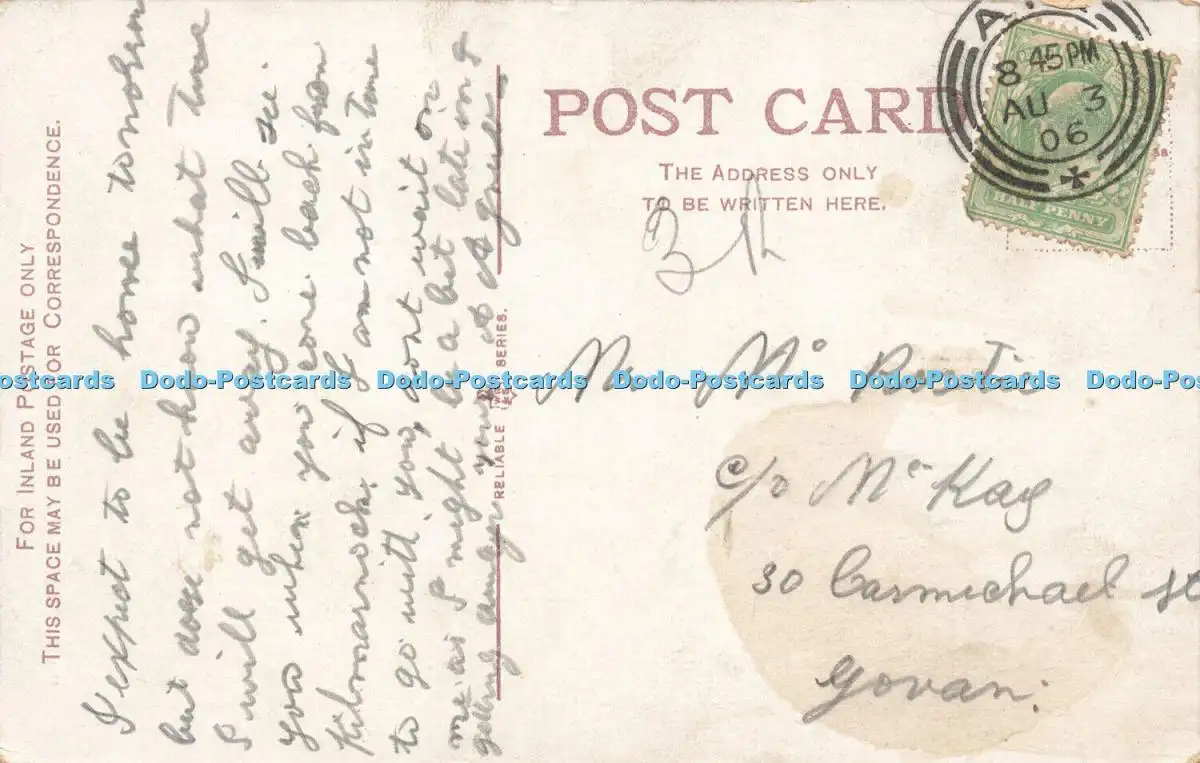 FOR INLAND POSTAGE ONLY
THIS SPACE MAY BE USED FOR CORRESPONDENCE.
I expect to be home tomorrow
but dose not know what time
I will get away. I will see
you when you come back from
Kilmarnock, if I am not in time
to go with you, dont wait on
me as I might be a bit late in
getting away yours
RELIABLE SERIES.
POST CARD
THE ADDRESS ONLY
TO BE WRITTEN HERE.
8 45 PM
AU 3
06
HALF PENNY
Mr Mc
c/o McKay
30 Carmichael St
Govan.
Dodo-Postcards Dodo-Postcards Dodo-Postcards Dodo-Postcards Dodo-Postcards Dodo-Postcards